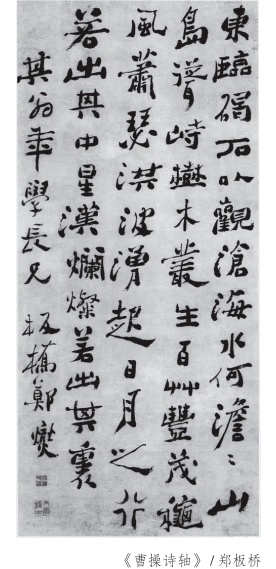 東臨碣石以觀滄海水何澹〻山
島聳峙樹木叢生百艸豐茂穐
風蕭瑟洪波湧起日月之行
若出其中星漢爛燦若出其裏
其翁年學長兄 板橋鄭燮
《曹操诗轴》/ 郑板桥